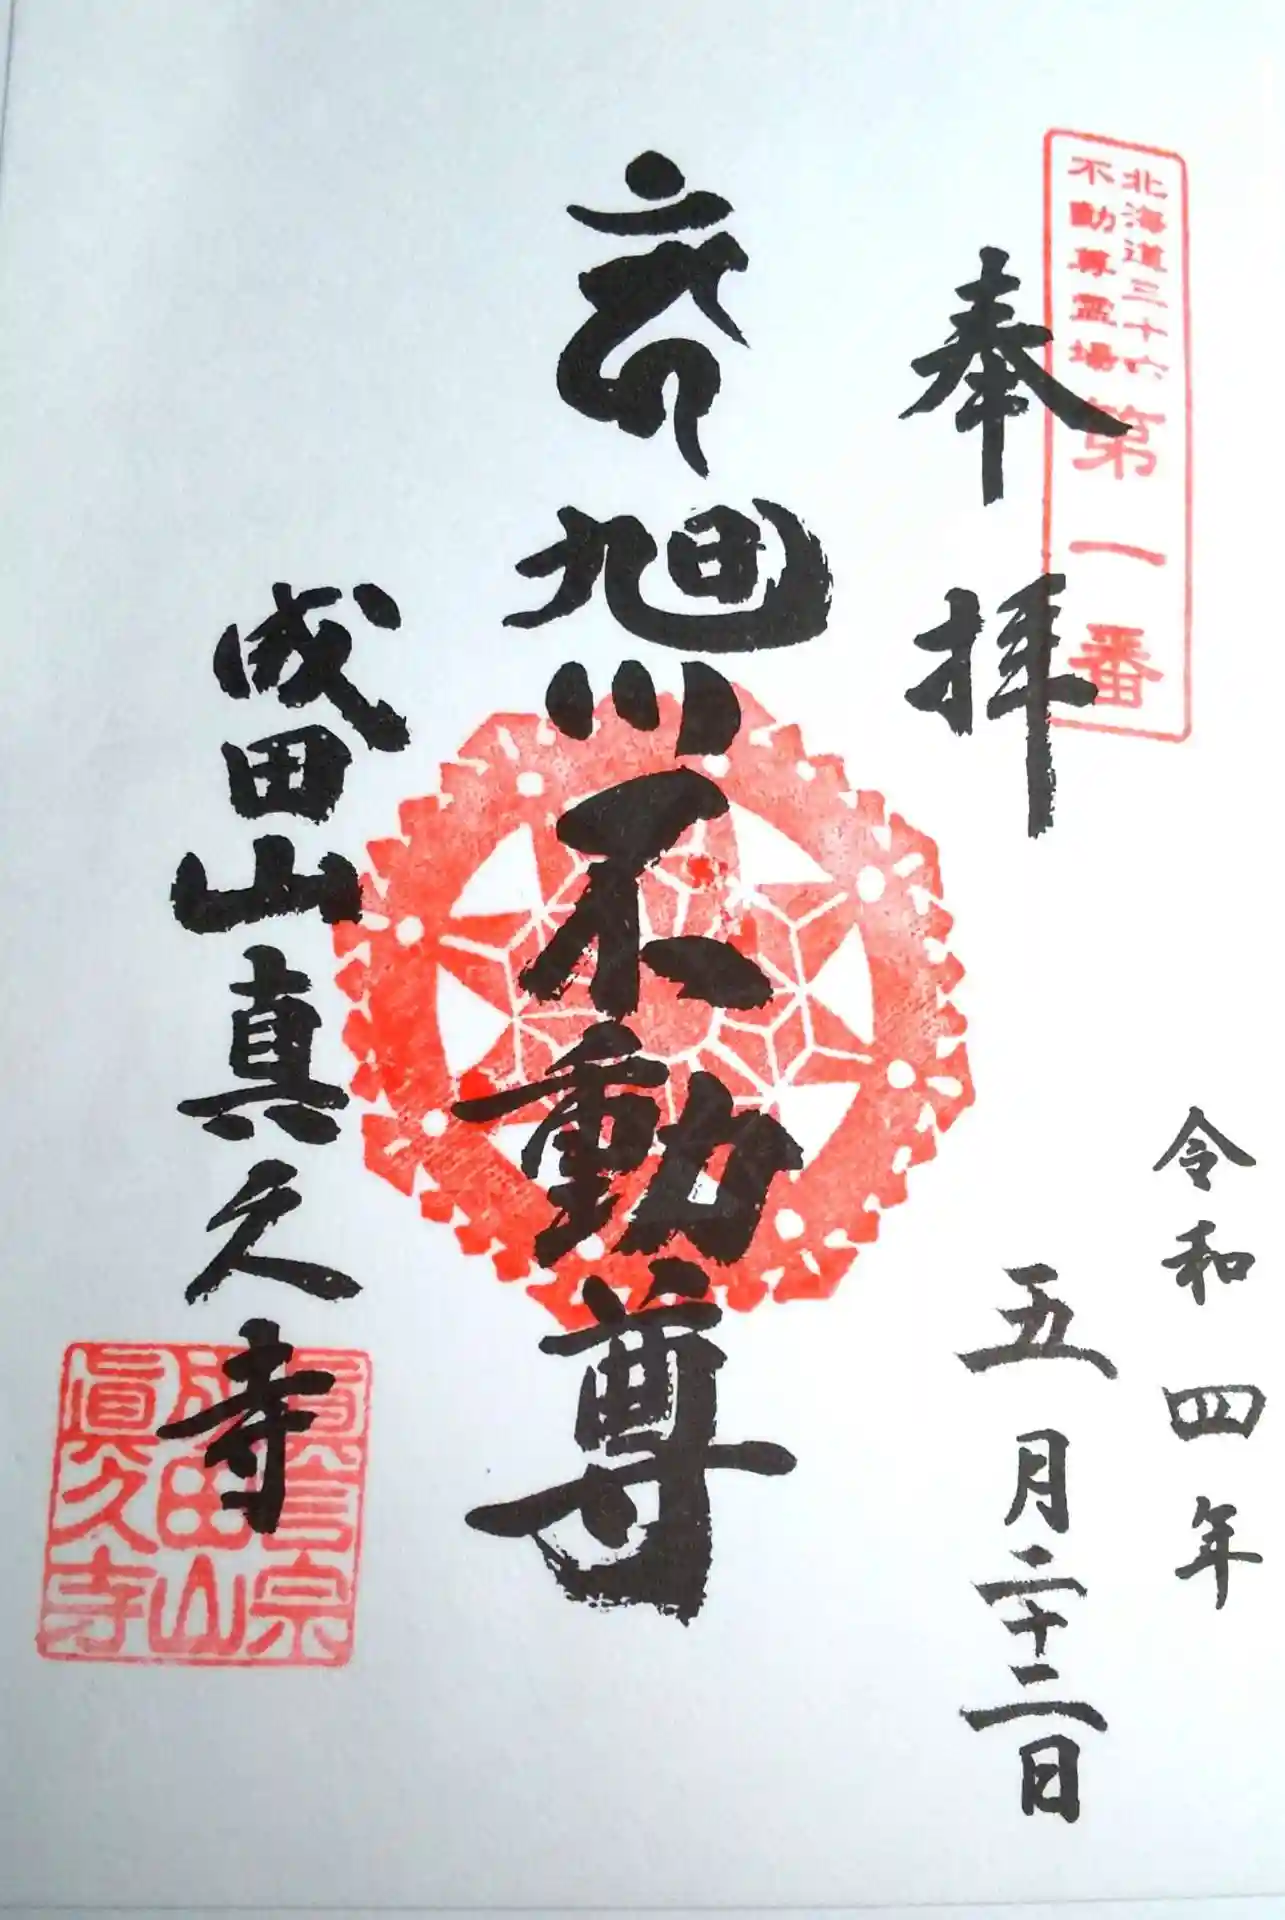 北海道三十六
不動尊霊場
第一番
奉拝
令和四年
五月二十二日
旭川不動尊
成田山真久寺
真言宗
成田山
眞久寺